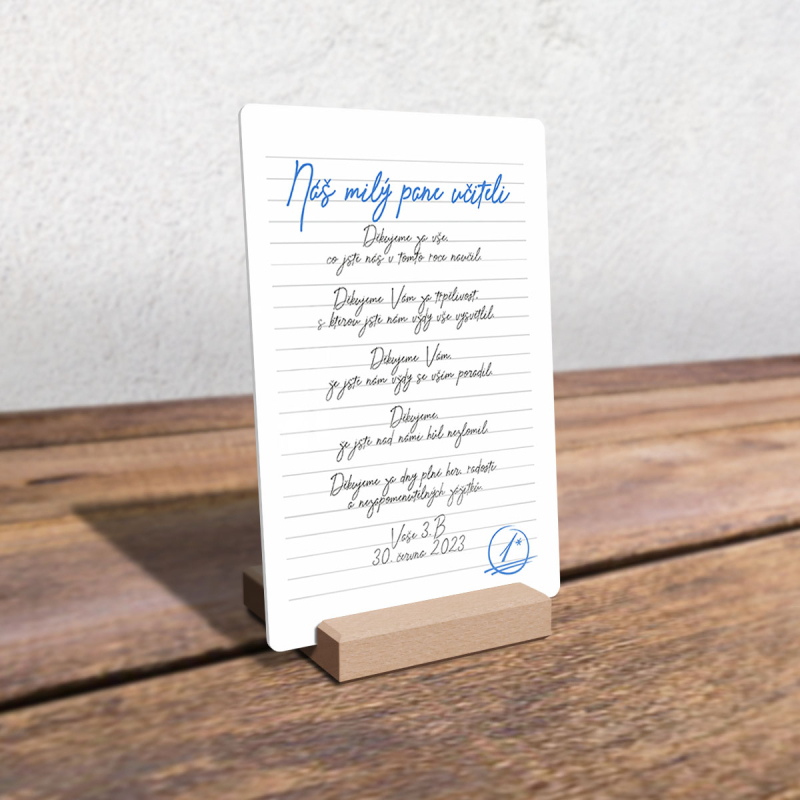 Náš milý pane učiteli
Děkujeme za vše,
co jste nás v tomto roce naučil.
Děkujeme Vám za trpělivost,
s kterou jste nám vždy vše vysvětlil.
Děkujeme Vám,
že jste nám vždy se vším poradil.
Děkujeme,
že jste nad námi hůl nezlomil.
Děkujeme za dny plné her, radosti
a nezapomenutelných zážitků.
Vaše 3.B
30. června 2023
1*